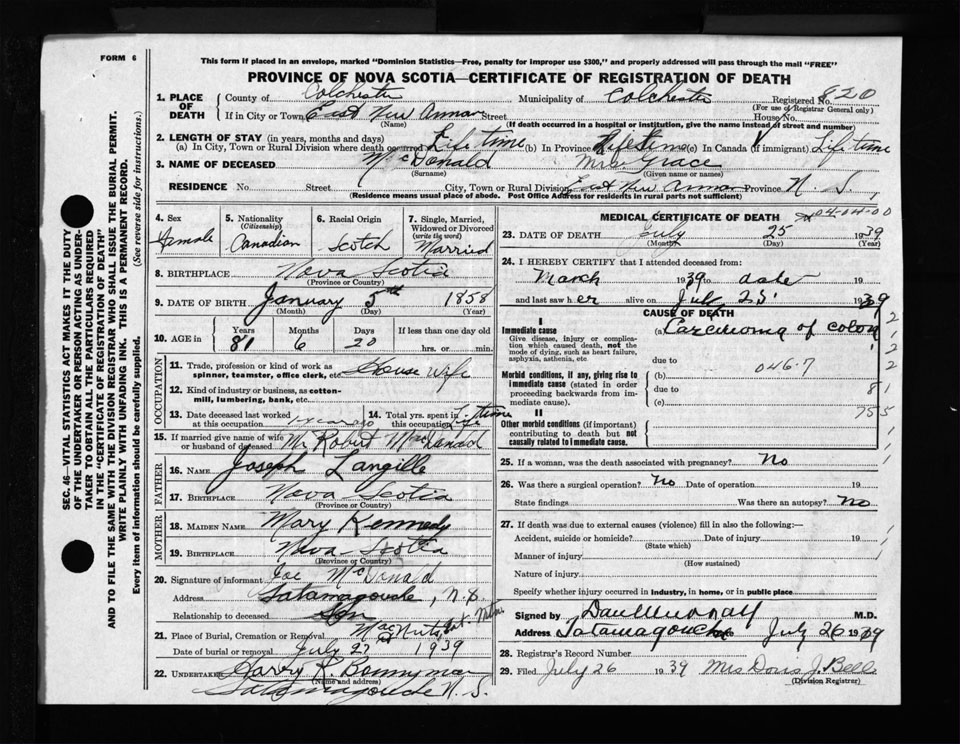 FORM 6
This form if placed in an envelope, marked "Dominion Statistics—Free, penalty for improper use $300," and properly addressed will pass through the mail "FREE"
PROVINCE OF NOVA SCOTIA—CERTIFICATE OF REGISTRATION OF DEATH
1. PLACE OF DEATH County of Colchester Municipality of Colchester Registered No. 820
(For use of Registrar General only)
If in City or Town East New Annan Street House No.
(Name) (If death occurred in a hospital or institution, give the name instead of street and number)
2. LENGTH OF STAY (in years, months and days)
(a) In City, Town or Rural Division where death occurred Life time (b) In Province Life time (c) In Canada (if immigrant) Life time
3. NAME OF DECEASED McDonald Mrs Grace
(Surname) (Given name or names)
RESIDENCE No. Street City, Town or Rural Division East New Annan Province N. S.
(Residence means usual place of abode. Post Office Address for residents in rural parts not sufficient)
4. Sex Female
5. Nationality (Citizenship) Canadian
6. Racial Origin Scotch
7. Single, Married, Widowed or Divorced (write the word) Married
8. BIRTHPLACE Nova Scotia
(Province or Country)
9. DATE OF BIRTH January 5th 1858
(Month) (Day) (Year)
10. AGE in Years 81 Months 6 Days 20 If less than one day old hrs. or min.
OCCUPATION
11. Trade, profession or kind of work as spinner, teamster, office clerk, etc. House wife
12. Kind of industry or business, as cotton-mill, lumbering, bank, etc.
13. Date deceased last worked at this occupation 1 year ago
14. Total yrs. spent in this occupation Life time
15. If married give name of wife or husband of deceased Mr Robert MacDonald
FATHER
16. NAME Joseph Langille
17. BIRTHPLACE Nova Scotia
(Province or Country)
MOTHER
18. MAIDEN NAME Mary Kennedy
19. BIRTHPLACE Nova Scotia
(Province or Country)
20. Signature of informant Joe McDonald
Address Tatamagouche, N.S.
Relationship to deceased Son
21. Place of Burial, Cremation or Removal
Date of burial or removal July 27 1939
22. UNDERTAKER Harry R. Bonnyman
(Name and address)
Tatamagouche N. S.
MEDICAL CERTIFICATE OF DEATH 04-04-00
23. DATE OF DEATH July 25 1939
(Month) (Day) (Year)
24. I HEREBY CERTIFY that I attended deceased from:
March 1939 to date 19
and last saw her alive on July 25 1939
CAUSE OF DEATH
I
Immediate cause (a) Carcinoma of colon
Give disease, injury or complication which caused death, not the mode of dying, such as heart failure, asphyxia, asthenia, etc.
due to
046.7
Morbid conditions, if any, giving rise to immediate cause (stated in order proceeding backwards from immediate cause).
(b)
due to
(c)
II
Other morbid conditions (if important) contributing to death but not causally related to immediate cause.
2
1
2
2
81
755
1
1
1
25. If a woman, was the death associated with pregnancy? No
26. Was there a surgical operation? No Date of operation 19
State findings Was there an autopsy? No
27. If death was due to external causes (violence) fill in also the following:—
Accident, suicide or homicide? Date of injury 19
(State which)
Manner of injury
(How sustained)
Nature of injury
Specify whether injury occurred in Industry, in home, or in public place
Signed by Dan Murray M.D.
Address Tatamagouche July 26 1939
28. Registrar's Record Number
29. Filed July 26 1939 Mrs Doris J. Bell
(Division Registrar)
SEC. 46—VITAL STATISTICS ACT MAKES IT THE DUTY
OF THE UNDERTAKER OR PERSON ACTING AS UNDER-
TAKER TO OBTAIN ALL THE PARTICULARS REQUIRED
IN THE "CERTIFICATE OF REGISTRATION OF DEATH"
AND TO FILE THE SAME WITH THE DIVISION REGISTRAR WHO SHALL ISSUE THE BURIAL PERMIT.
WRITE PLAINLY WITH UNFADING INK. THIS IS A PERMANENT RECORD.
Every item of information should be carefully supplied. (See reverse side for instructions.)